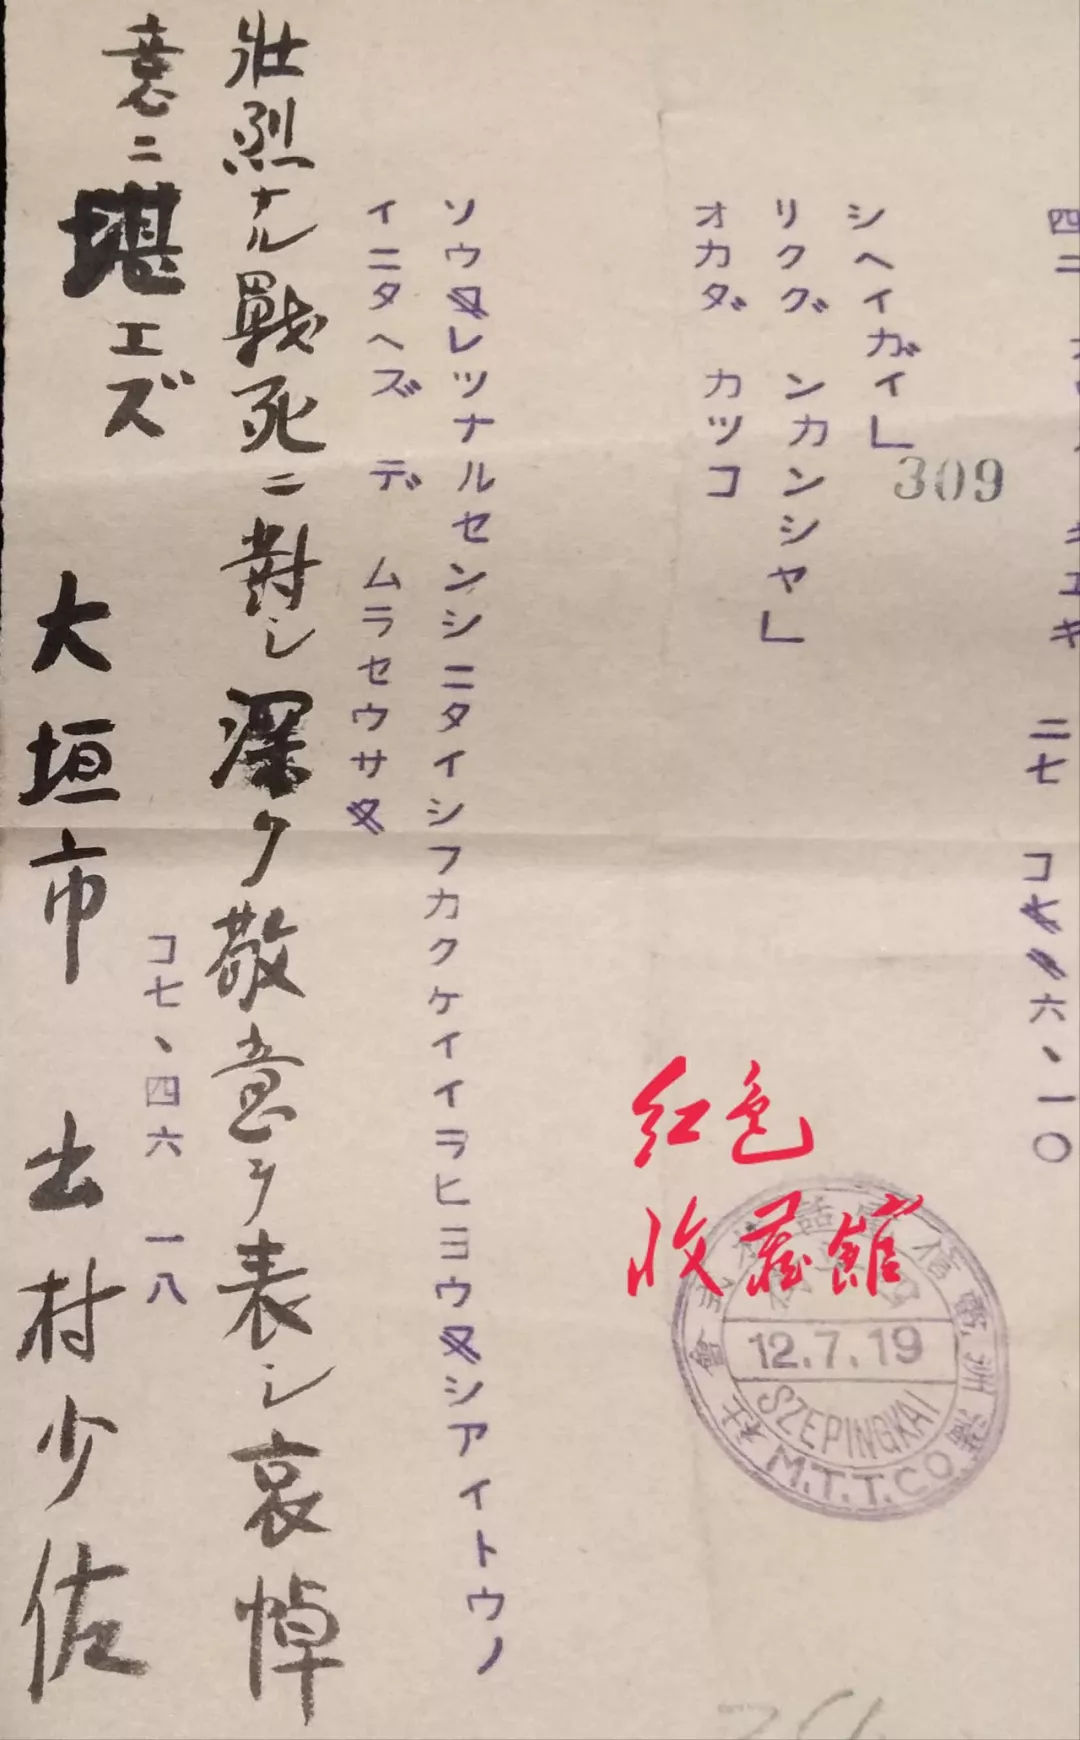 二七 コ 六、一〇
シヘイガイ」
309
リクグ ンカンシヤ」
オカダ カツコ
ソウレツナルセンシニタイシフカクケイイヲヒヨウシアイトウノ
イニタヘズ デ ムラセウサ
壯烈ナル戰死ニ對シ深ク敬意ヲ表シ哀悼
意ニ堪エズ
コ七、四六 一八
大垣市 出村少佐
红色
收藏館
滿洲電信電話株式會社
12.7.19
SZEPINGKAI
M.T.T.CO.